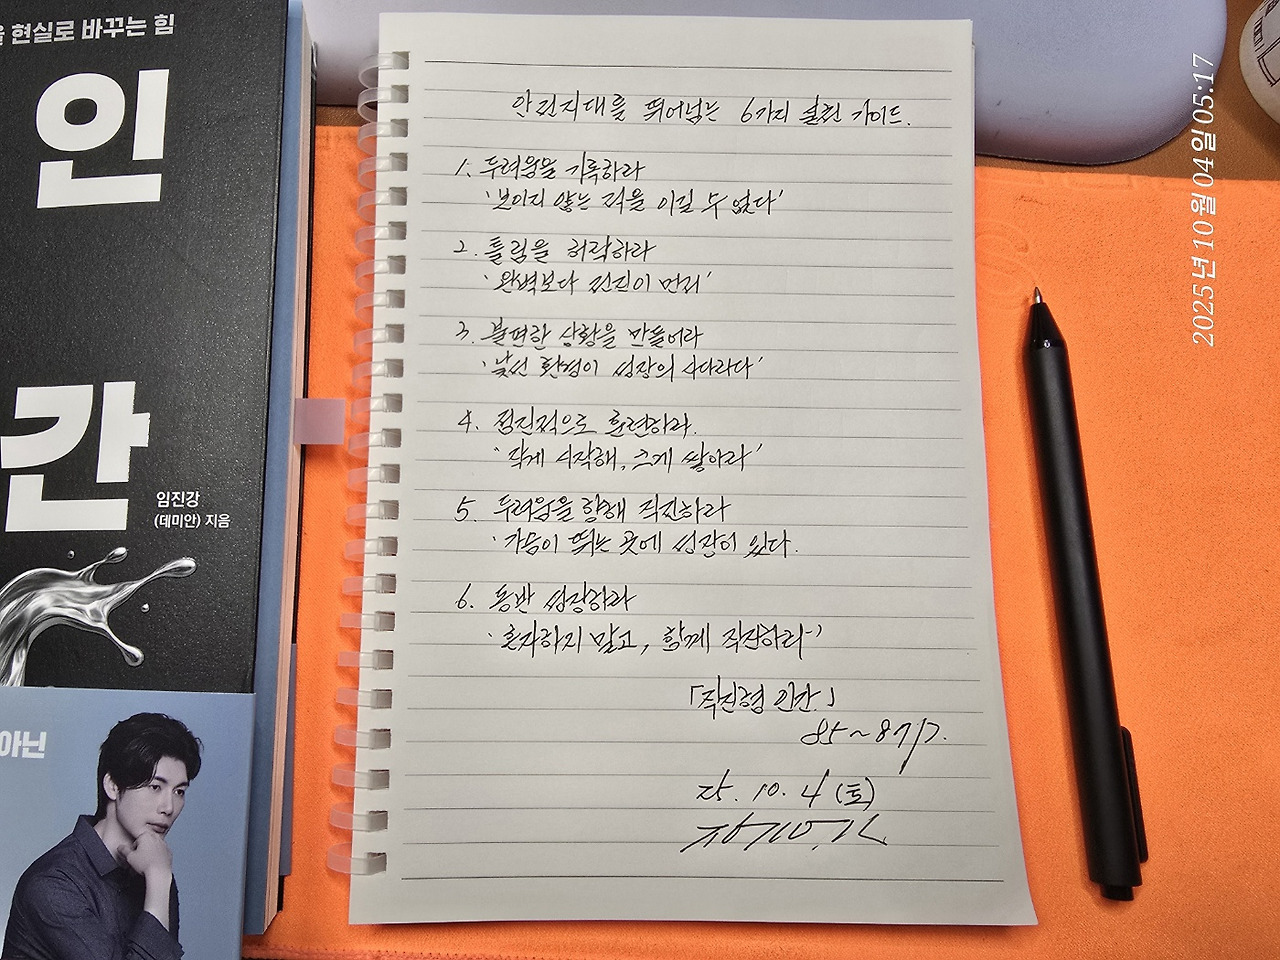 현실로 바꾸는 힘
인
간
임진강
(데미안) 지음
아닌
안전지대를 뛰어넘는 6가지 훈련 가이드.
1. 두려움을 기록하라
'보이지 않는 적을 이길 수 없다'
2. 틀림을 허락하라
'완벽보다 전진이 먼저'
3. 불편한 상황을 만들어라
'낯선 환경이 성장의 사다리다'
4. 점진적으로 훈련하라.
'작게 시작해, 크게 쌓아라'
5. 두려움을 향해 직진하라
'가슴이 뛰는 곳에 성장이 있다.
6. 동반 성장하라
'혼자하지 말고, 함께 직진하라'
「직진형 인간.」
85~87p.
25. 10. 4 (토)
2025년 10월 04일 05:17